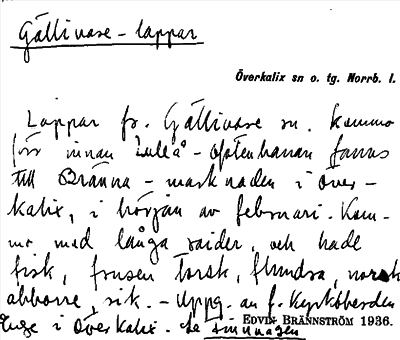 Gällivare-lappar
Överkalix sn o. tg. Norrb. l.
Lappar fr. Gällivare sn. kommo
förr innan Luleå - Ofotenbanan fanns
till Bränna-marknaden i Över-
kalix, i början av februari. Kom-
mo med långa raider, och hade
fisk, frusen torsk, flundra, norsk
abborre, sik. - Uppg. av f. kyrkoherden
i Överkalix. Se
EDVIN BRÄNNSTRÖM 1936.